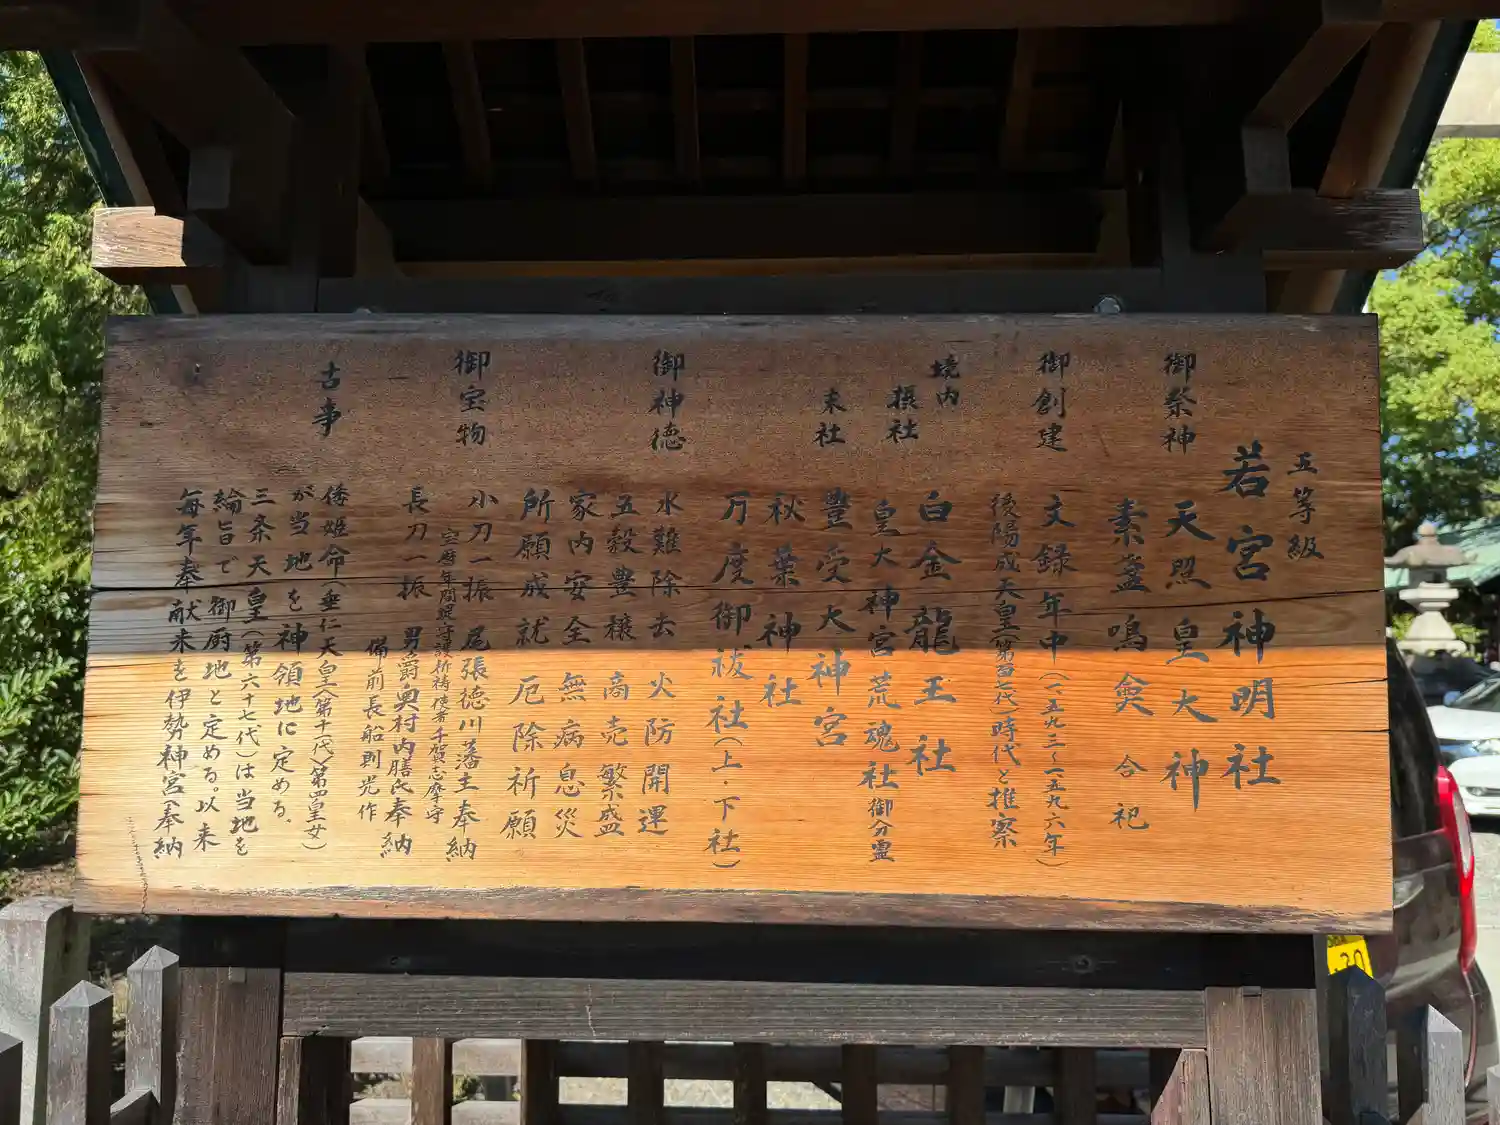 五等級
若宮神明社
御祭神 天照皇大神
素盞嗚尊 合祀
御創建 文録年中(一五九三~一五九六年)
後陽成天皇(第百七代)時代と推察
境内
摂社 白金龍王社
皇大神宮荒魂社御分霊
末社 豊受大神宮
秋葉神社
万度御祓社(上・下社)
御神徳 水難除去 火防開運
五穀豊穣 商売繁盛
家内安全 無病息災
所願成就 厄除祈願
御宝物 小刀一振 尾張徳川藩主奉納
宝暦年間堤守護祈祷使者千賀志摩守
長刀一振 男爵奥村内膳氏奉納
備前長船則光作
古事 倭姫命(垂仁天皇〈第十一代〉第四皇女)
が当地を神領地に定める。
三条天皇(第六十七代)は当地を
綸旨で御厨地と定める。以来
毎年奉献米を伊勢神宮へ奉納